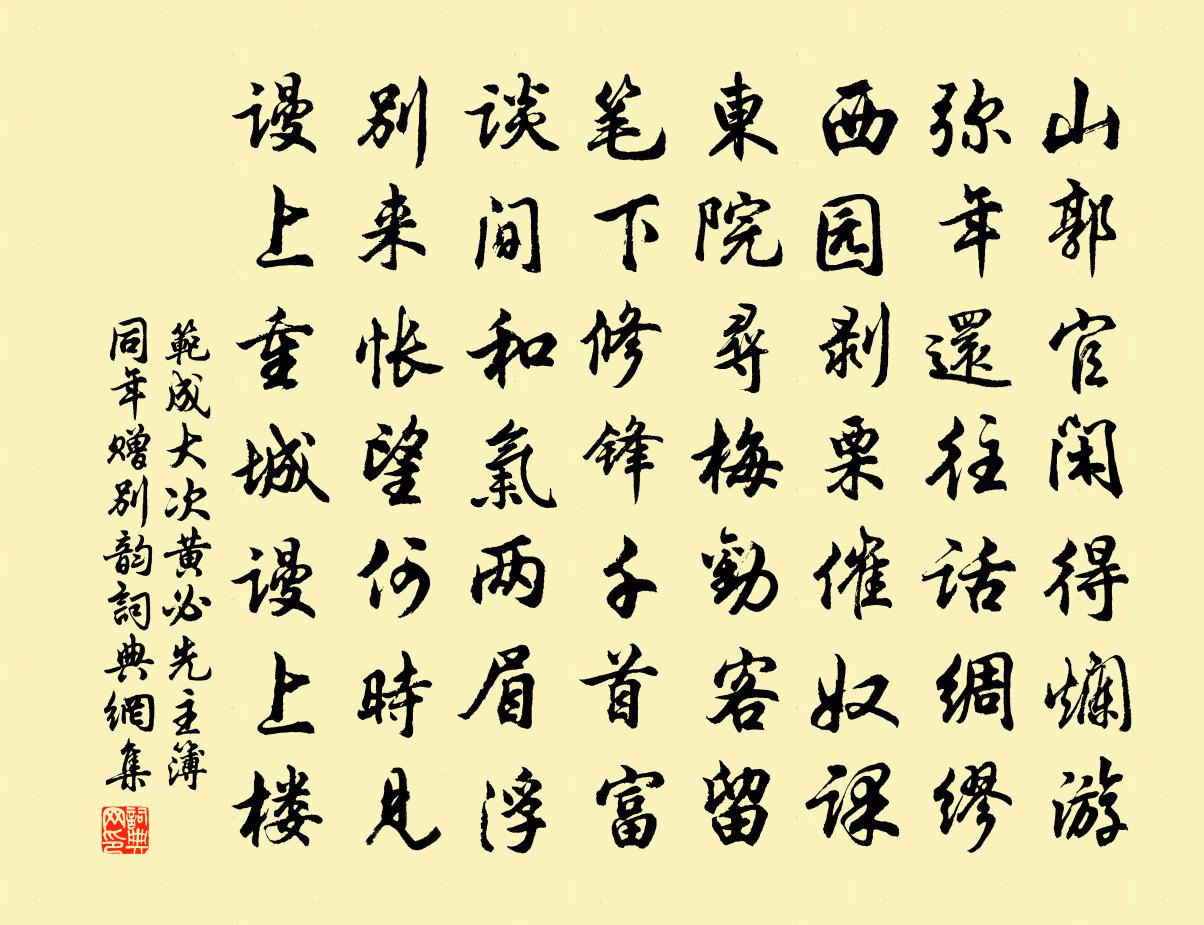 山郭官闲得爛游
弥年還往话綢缪
西园剥栗催奴课
東院尋梅勸客留
笔下修锋千首富
谈间和氣两眉浮
别来怅望何時见
谩上重城谩上楼
範成大次黄必先主簿
同年赠别韵詞典網集
詞典
网印